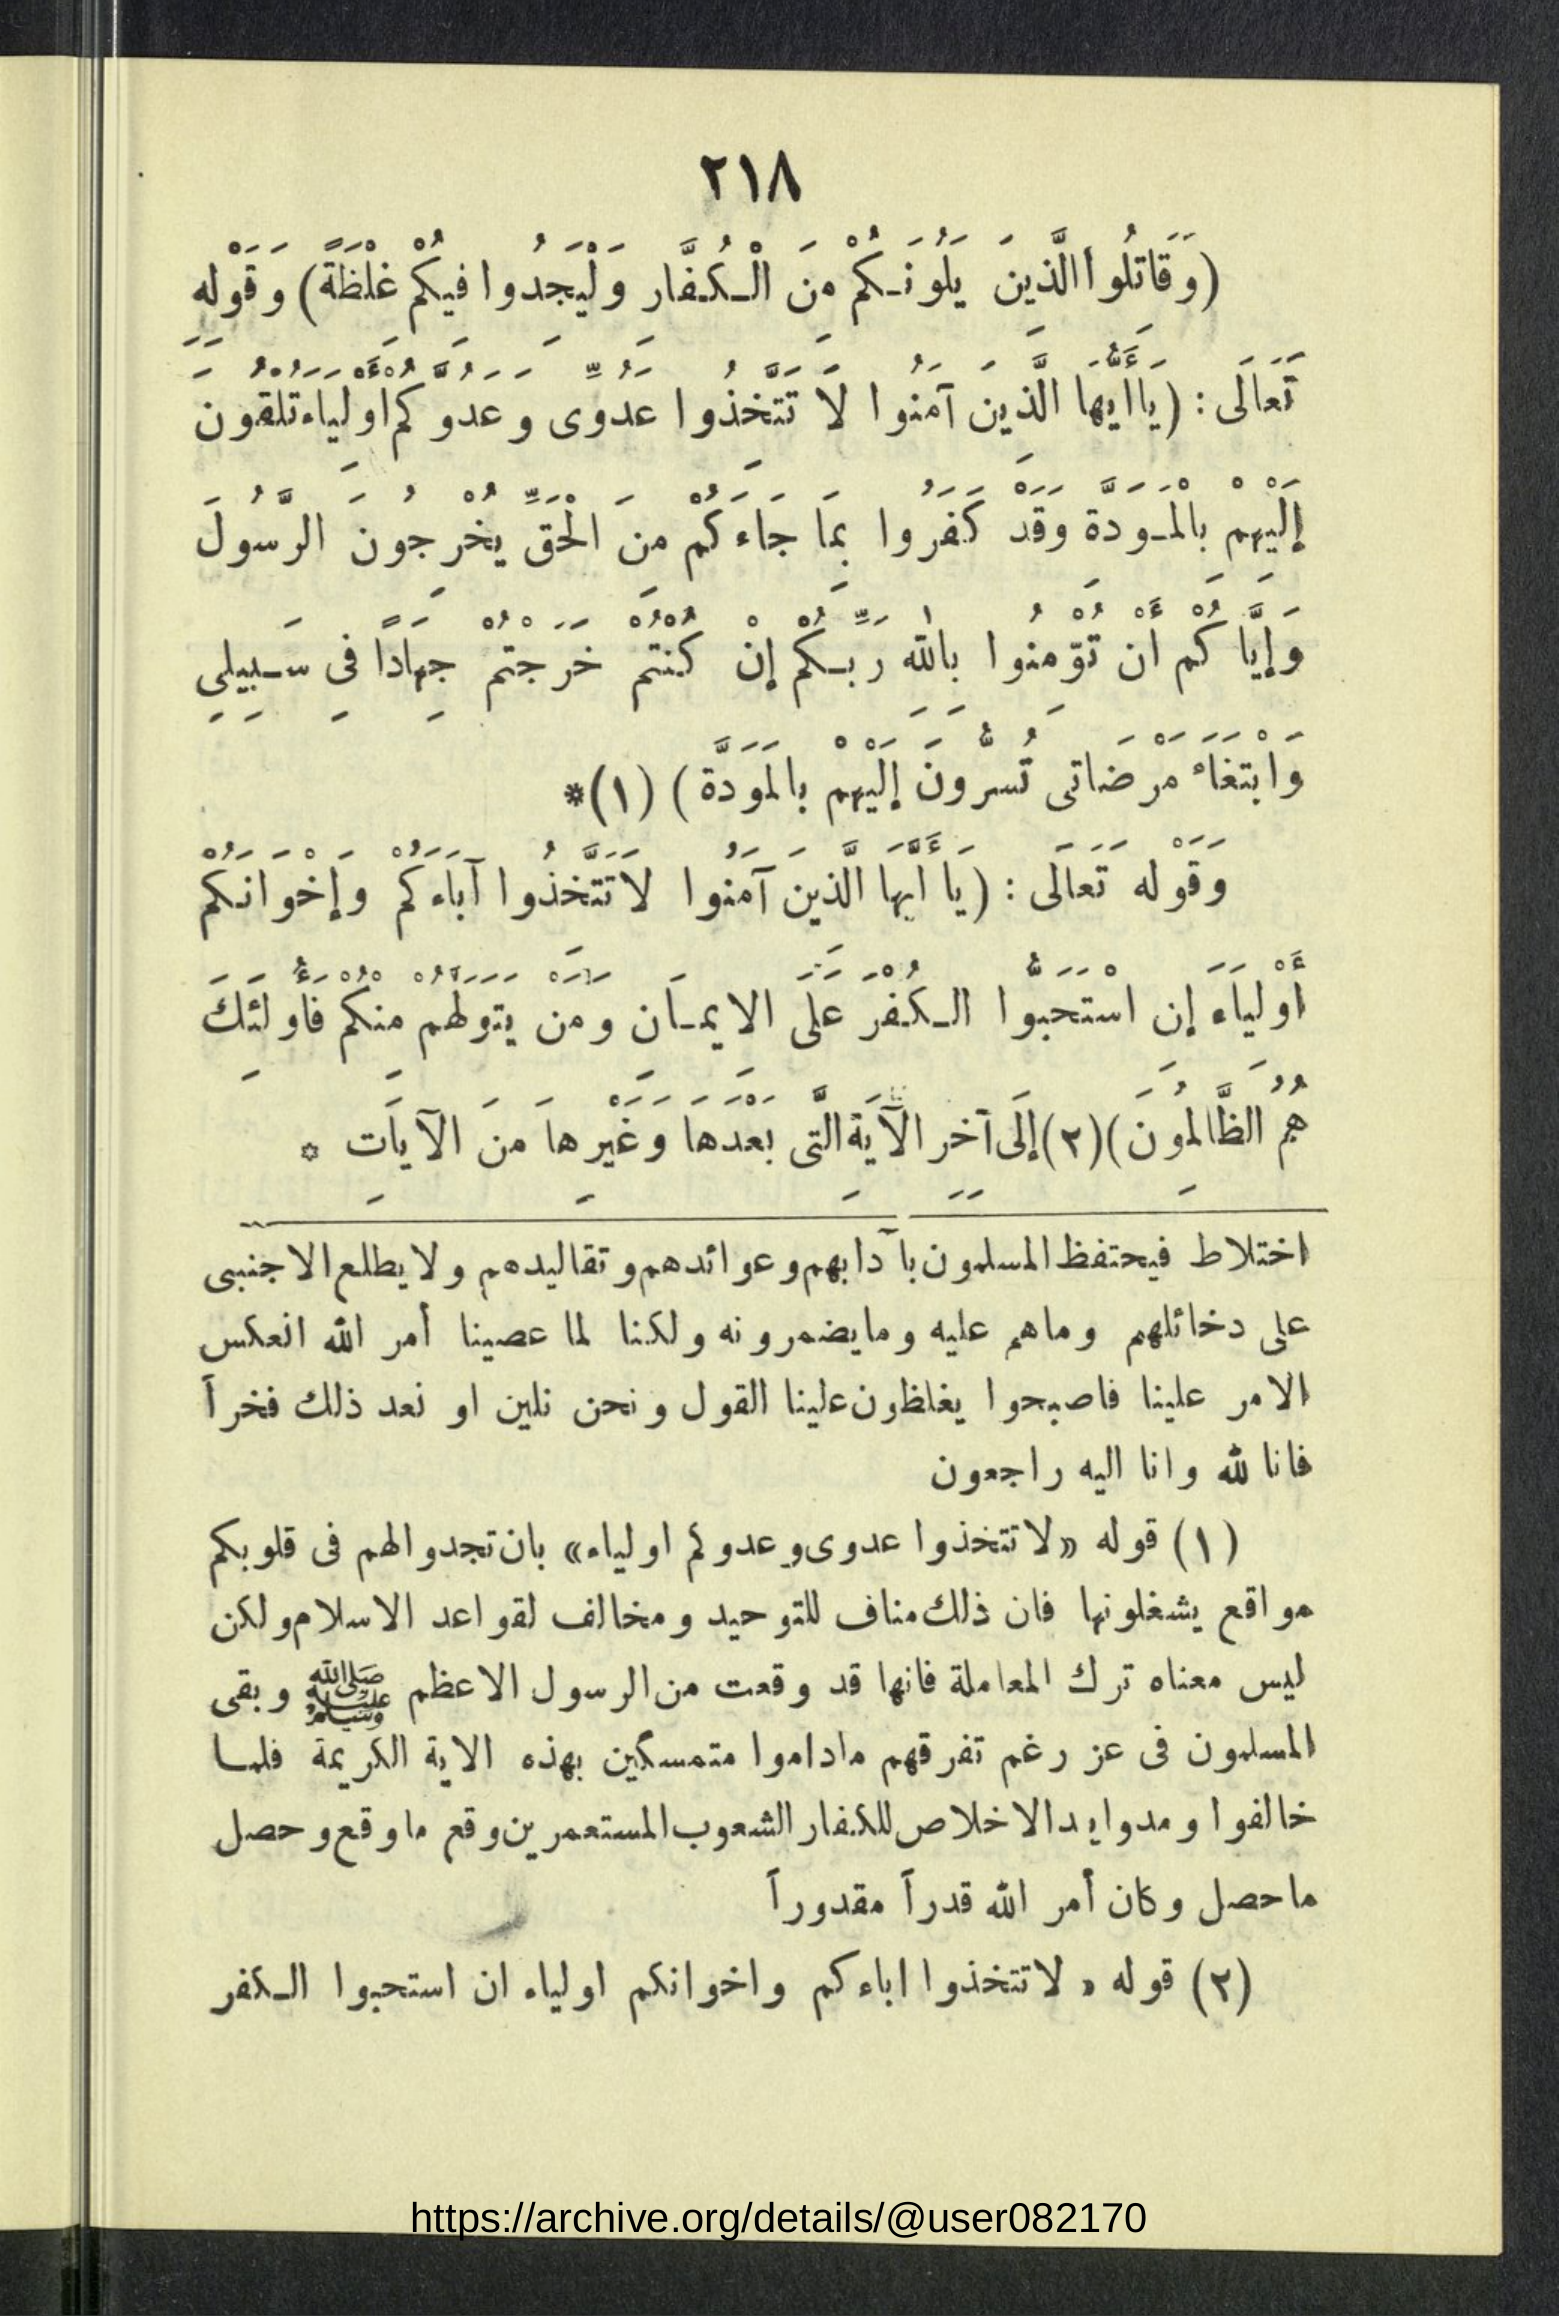 ٢١٨
(وَقَاتِلُوا الَّذِينَ يَلُونَكُمْ مِنَ الْكُفَّارِ وَلْيَجِدُوا فِيكُمْ غِلْظَةً) وَقَوْلِهِ
تَعَالَى : (يَا أَيُّهَا الَّذِينَ آمَنُوا لَا تَتَّخِذُوا عَدُوِّى وَعَدُوَّكُمْ أَوْلِيَاءَ تُلْقُونَ
إِلَيْهِمْ بِالْمَوَدَّةِ وَقَدْ كَفَرُوا بِمَا جَاءَكُمْ مِنَ الْحَقِّ يُخْرِجُونَ الرَّسُولَ
وَإِيَّاكُمْ أَنْ تُؤْمِنُوا بِاللهِ رَبِّكُمْ إِنْ كُنْتُمْ خَرَجْتُمْ جِهَادًا فِى سَبِيلِى
وَابْتِغَاءَ مَرْضَاتِى تُسِرُّونَ إِلَيْهِمْ بِالْمَوَدَّةِ) (١)*
وَقَوْلِهِ تَعَالَى : (يَا أَيُّهَا الَّذِينَ آمَنُوا لَا تَتَّخِذُوا آبَاءَكُمْ وَإِخْوَانَكُمْ
أَوْلِيَاءَ إِنِ اسْتَحَبُّوا الْكُفْرَ عَلَى الايمَانِ وَمَنْ يَتَوَلَّهُمْ مِنْكُمْ فَأُولَئِكَ
هُمُ الظَّالِمُونَ) (٢) إِلَى آخِرِ الْآيَةِ الَّتِى بَعْدَهَا وَغَيْرِهَا مِنَ الْآيَاتِ *
اختلاط فيحتفظ المسلمون بآدابهم وعوائدهم وتقاليدهم ولا يطلع الاجنبى
على دخائلهم وماهم عليه وما يضمرونه ولكنا لما عصينا أمر الله انعكس
الامر علينا فاصبحوا يغلظون علينا القول ونحن نلين او نعد ذلك فخراً
فانا لله وانا اليه راجعون
(١) قوله «لا تتخذوا عدوى وعدوكم اولياء» بان تجدوا لهم فى قلوبكم
مواقع يشغلونها فان ذلك مناف للتوحيد ومخالف لقواعد الاسلام ولكن
ليس معناه ترك المعاملة فانها قد وقعت من الرسول الاعظم ﷺ وبقى
المسلمون فى عز رغم تفرقهم ماداموا متمسكين بهذه الاية الكريمة فلما
خالفوا ومدوا يد الاخلاص للكفار الشعوب المستعمرين وقع ما وقع وحصل
ما حصل وكان أمر الله قدراً مقدوراً
(٢) قوله « لا تتخذوا اباءكم واخوانكم اولياء ان استحبوا الكفر
https://archive.org/details/@user082170